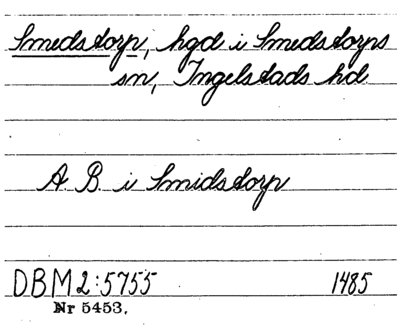 Smedstorp, hgd i Smedstorps
sn, Ingelstads hd.
A B. i Smidstorp
DBM 2:5755 1485
Nr 5453.